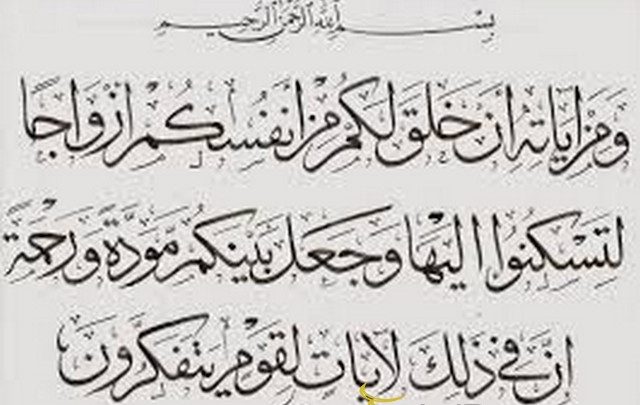 بسم الله الرحمن الرحيم
وَمِنْ اٰيَاتِهِ اَنْ خَلَقَ لَكُمْ مِنْ اَنْفُسِكُمْ اَزْوَاجًا
لِتَسْكُنُوا اِلَيْهَا وَجَعَلَ بَيْنَكُمْ مَوَدَّةً وَرَحْمَةً
اِنَّ فِي ذٰلِكَ لَاٰيَاتٍ لِقَوْمٍ يَتَفَكَّرُونَ